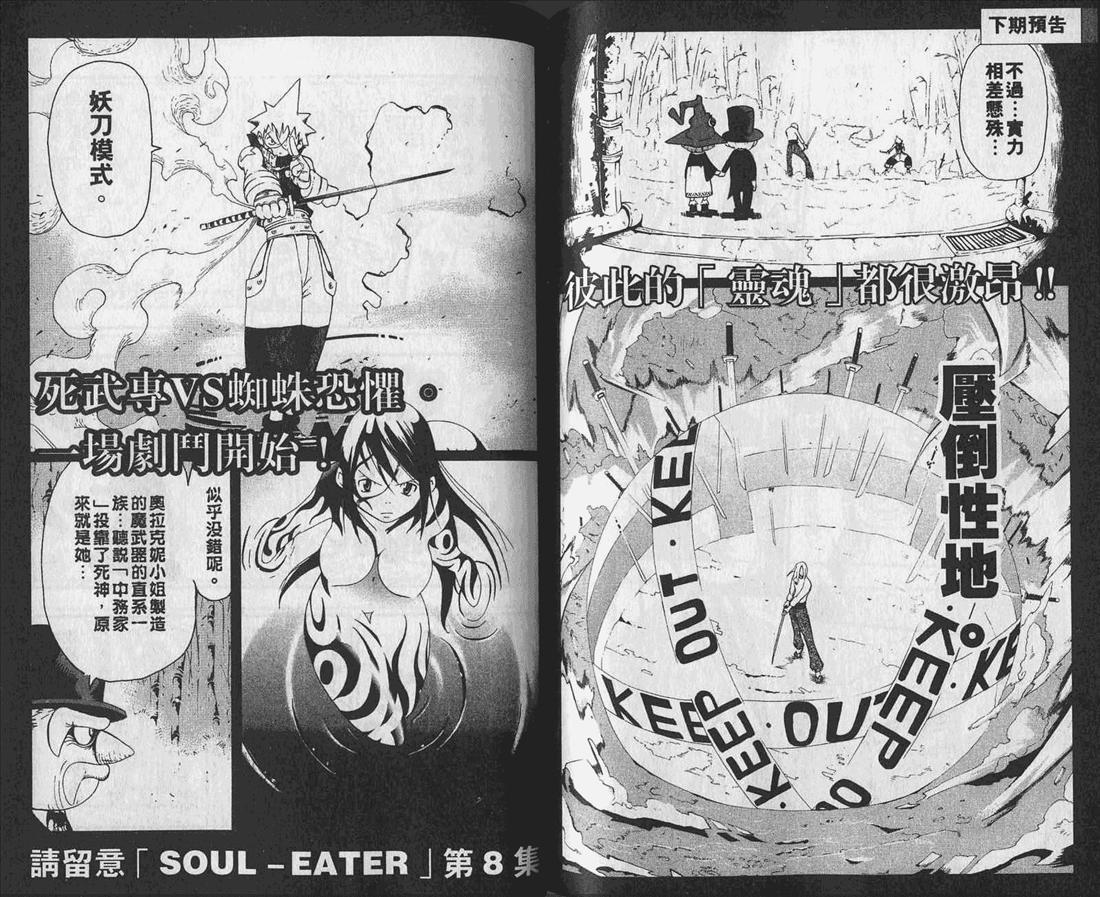 下期預告
不過…實力
相差懸殊…
彼此的「靈魂」都很激昂!!
壓倒性地。
KEEP OUT · KEE
KEEP · OUT
KEEP · KE
KEEP
· K
妖刀模式。
死武專VS蜘蛛恐懼
一場劇鬥開始!!
似乎沒錯呢。
奧拉克妮小姐製造
的魔武器的直系一
族…聽説「中務家
」投靠了死神，原
來就是她…
請留意「SOUL-EATER」第8集